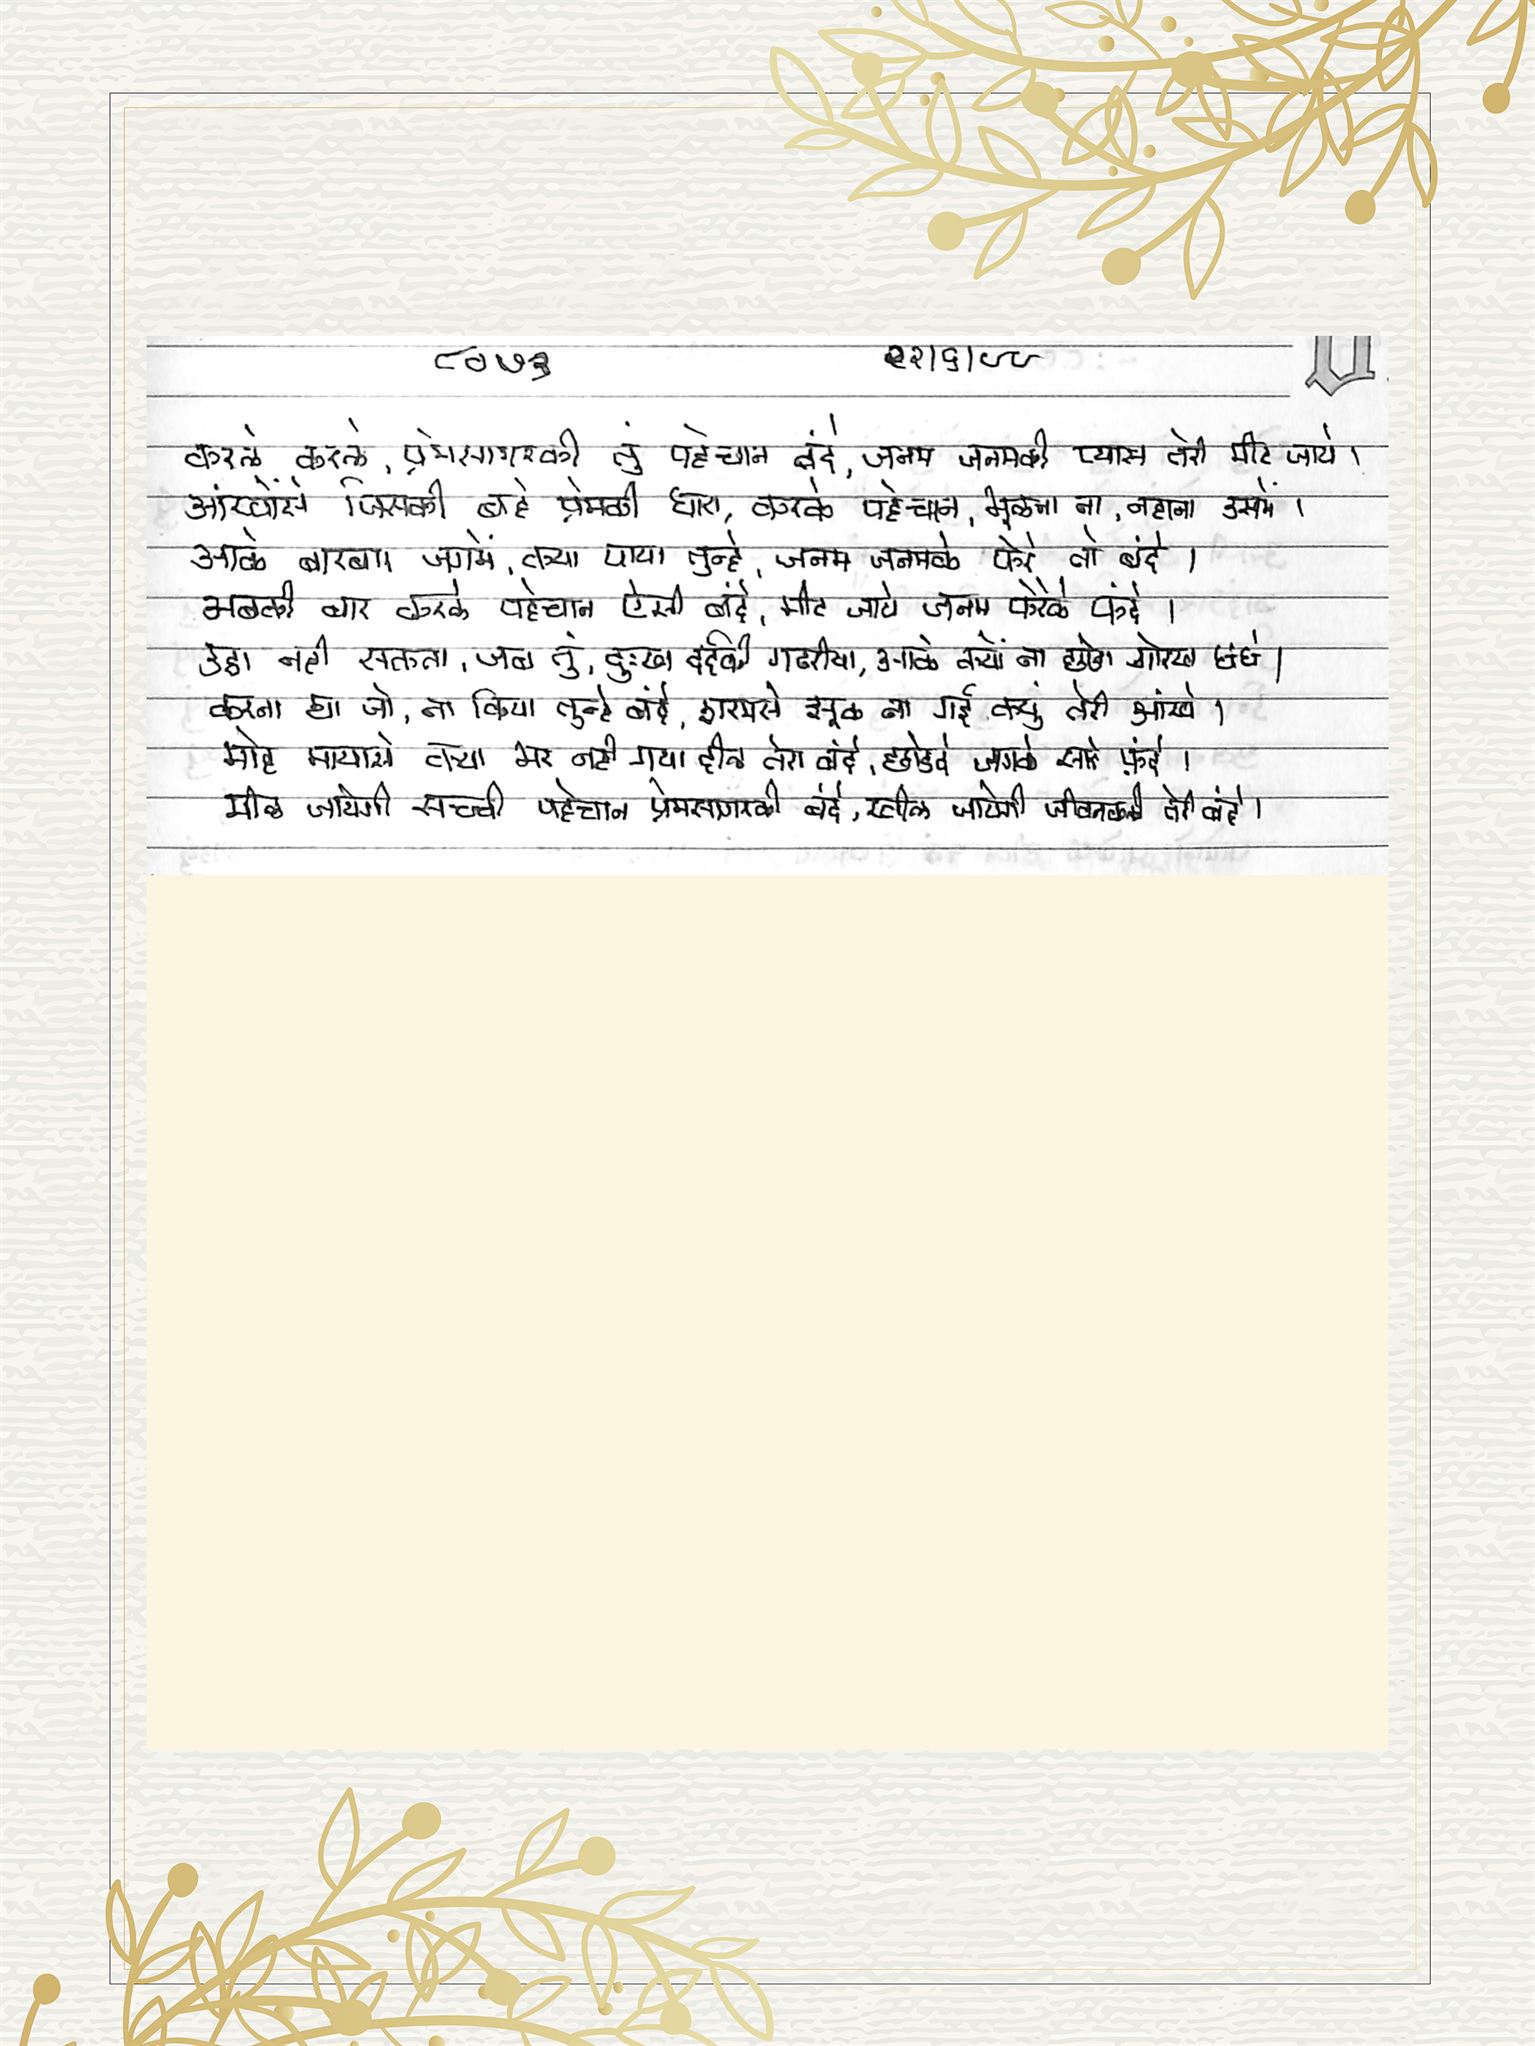 ८०७३ २२/६/८८
करले करले, प्रेमसागरकी तुं पहेचान बंदे, जनम जनमकी प्यास तेरी मीट जाये ।
आंखोंसे जिसकी बहे प्रेमकी धारा, करके पहेचान, भूलना ना, नहाना उसमें ।
आके बारबार जगमें, क्या पाया तुन्हे, जनम जनमके फेरे तो बंदे ।
अबकी बार करके पहेचान ऐसी बंदे, मीट जाये जनम फेरेके फंदे ।
उठा नही सकता, जब तुं, दुःख दर्दकी गठरीया, आके क्यों ना छोडा गोरख धंधे ।
करना था जो, ना किया तुन्हे बंदे, शरमसे झूक ना गई क्युं तेरी आंखे ।
मोह मायासे क्या भर नही गया दील तेरा बंदे, छोडदे जगके सारे फ़ंदे ।
मील जायेगी सच्ची पहेचान प्रेमसागरकी बंदे, खील जायेगी जीवनकली तेरी बंदे ।